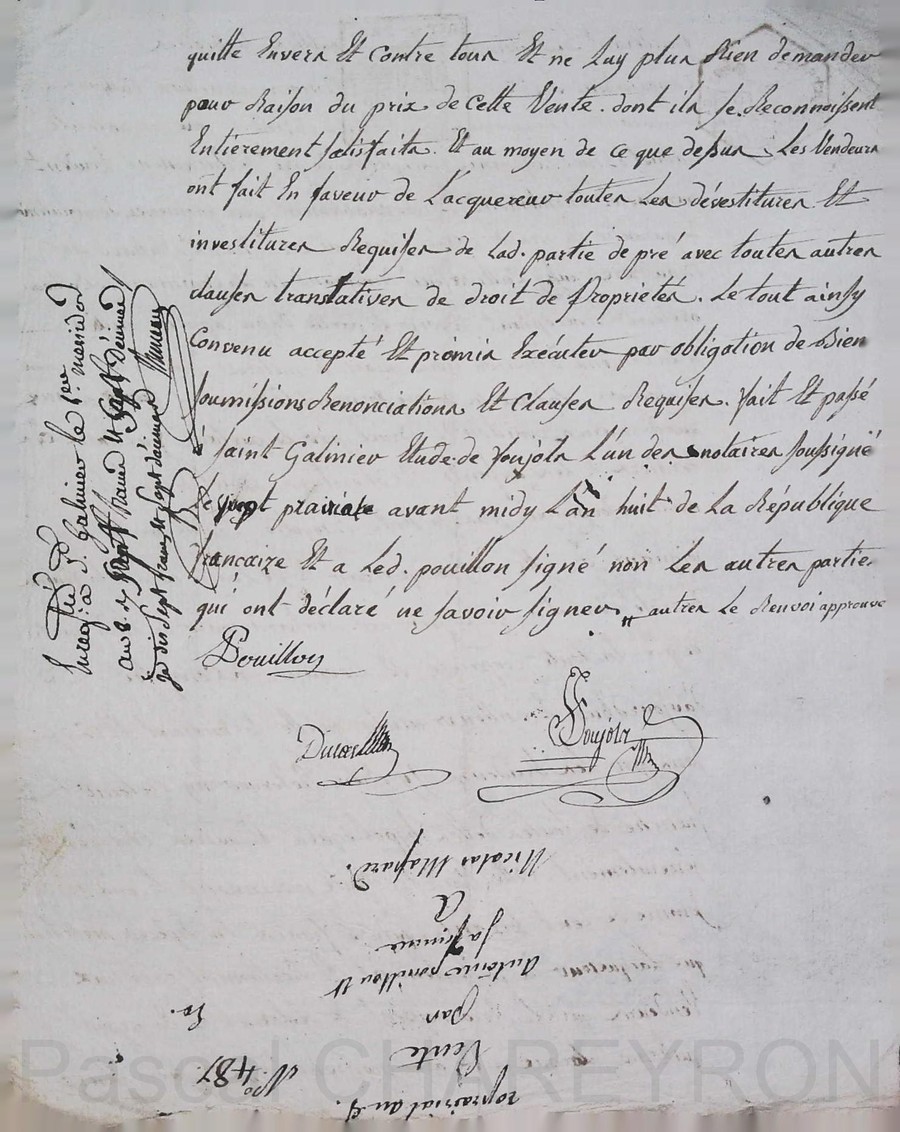 quitte Envers Et Contre tous Et ne luy plus Rien demander
pour Raison du prix de Cette Vente. dont ils se Reconnoissent
Entierement satisfaits. Et au moyen de ce que dessus, Les Vendeurs
ont fait En faveur de L'acquereur toutes Les dévestitures Et
investitures Requises de Lad. partie de pré avec toutes autres
clauses translatives de droit de Proprietés. Le tout ainsy
Convenu accepté Et promis Exécuter par obligation de Bien
soumissions Renonciations Et Clauses Requises. fait Et passé
à Saint Galinier Etude de Foujols L'un des notaires soussigné
Le vingt prairial avant midy L'an huit de La République
française Et a Led. pouillon signé non Les autres partie.
qui ont déclaré ne savoir signer,, autres Le Renvoi approuvé
Pouillon
Foujols
Enregé à S. Galinier le 1er. messidor
an 8.
dix sept francs
Nicolas
A
sa femme
Antoine pouillon Et
par
Vente
No 487
20 prairial an 8.
Pascal CHAREYRON